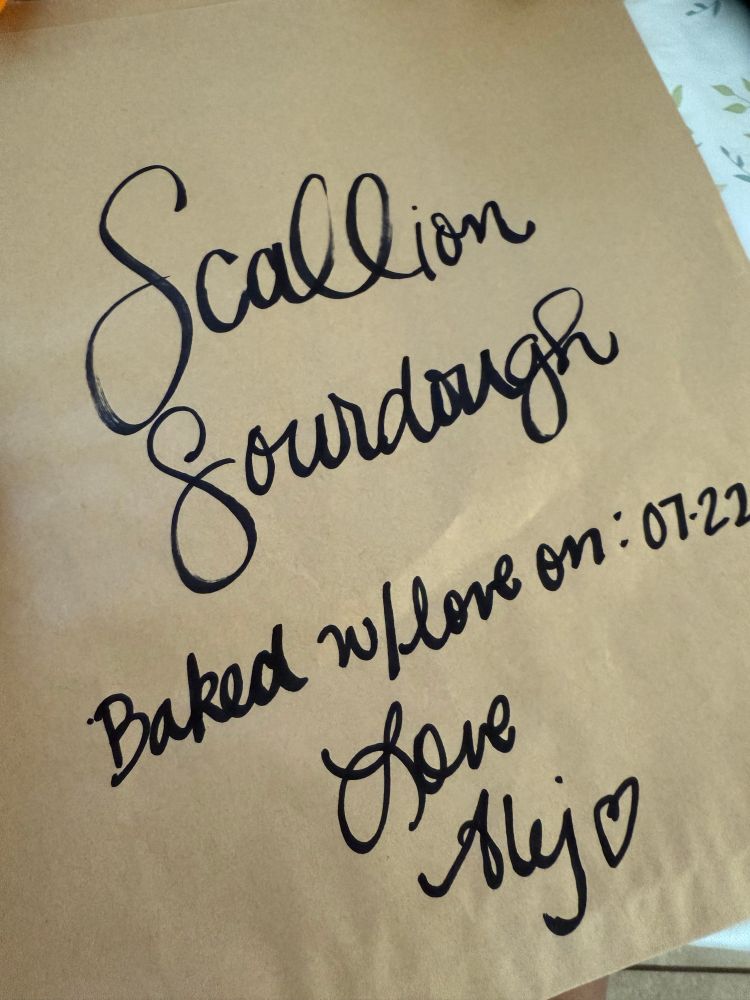 Scallion
Sourdough
Baked w/love on: 07.22
Love
Alej♡